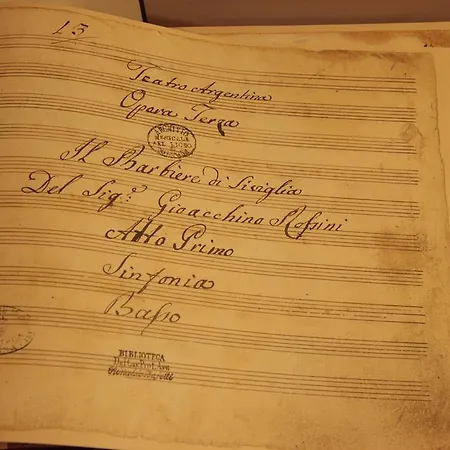 13
Teatro Argentina
Opera Terza
ARCHIVIO
MUSICALE
Il Barbiere di Siviglia
Del Sig.e Gioacchino Rossini
Atto Primo
Sinfonia
Basso
BIBLIOTECA